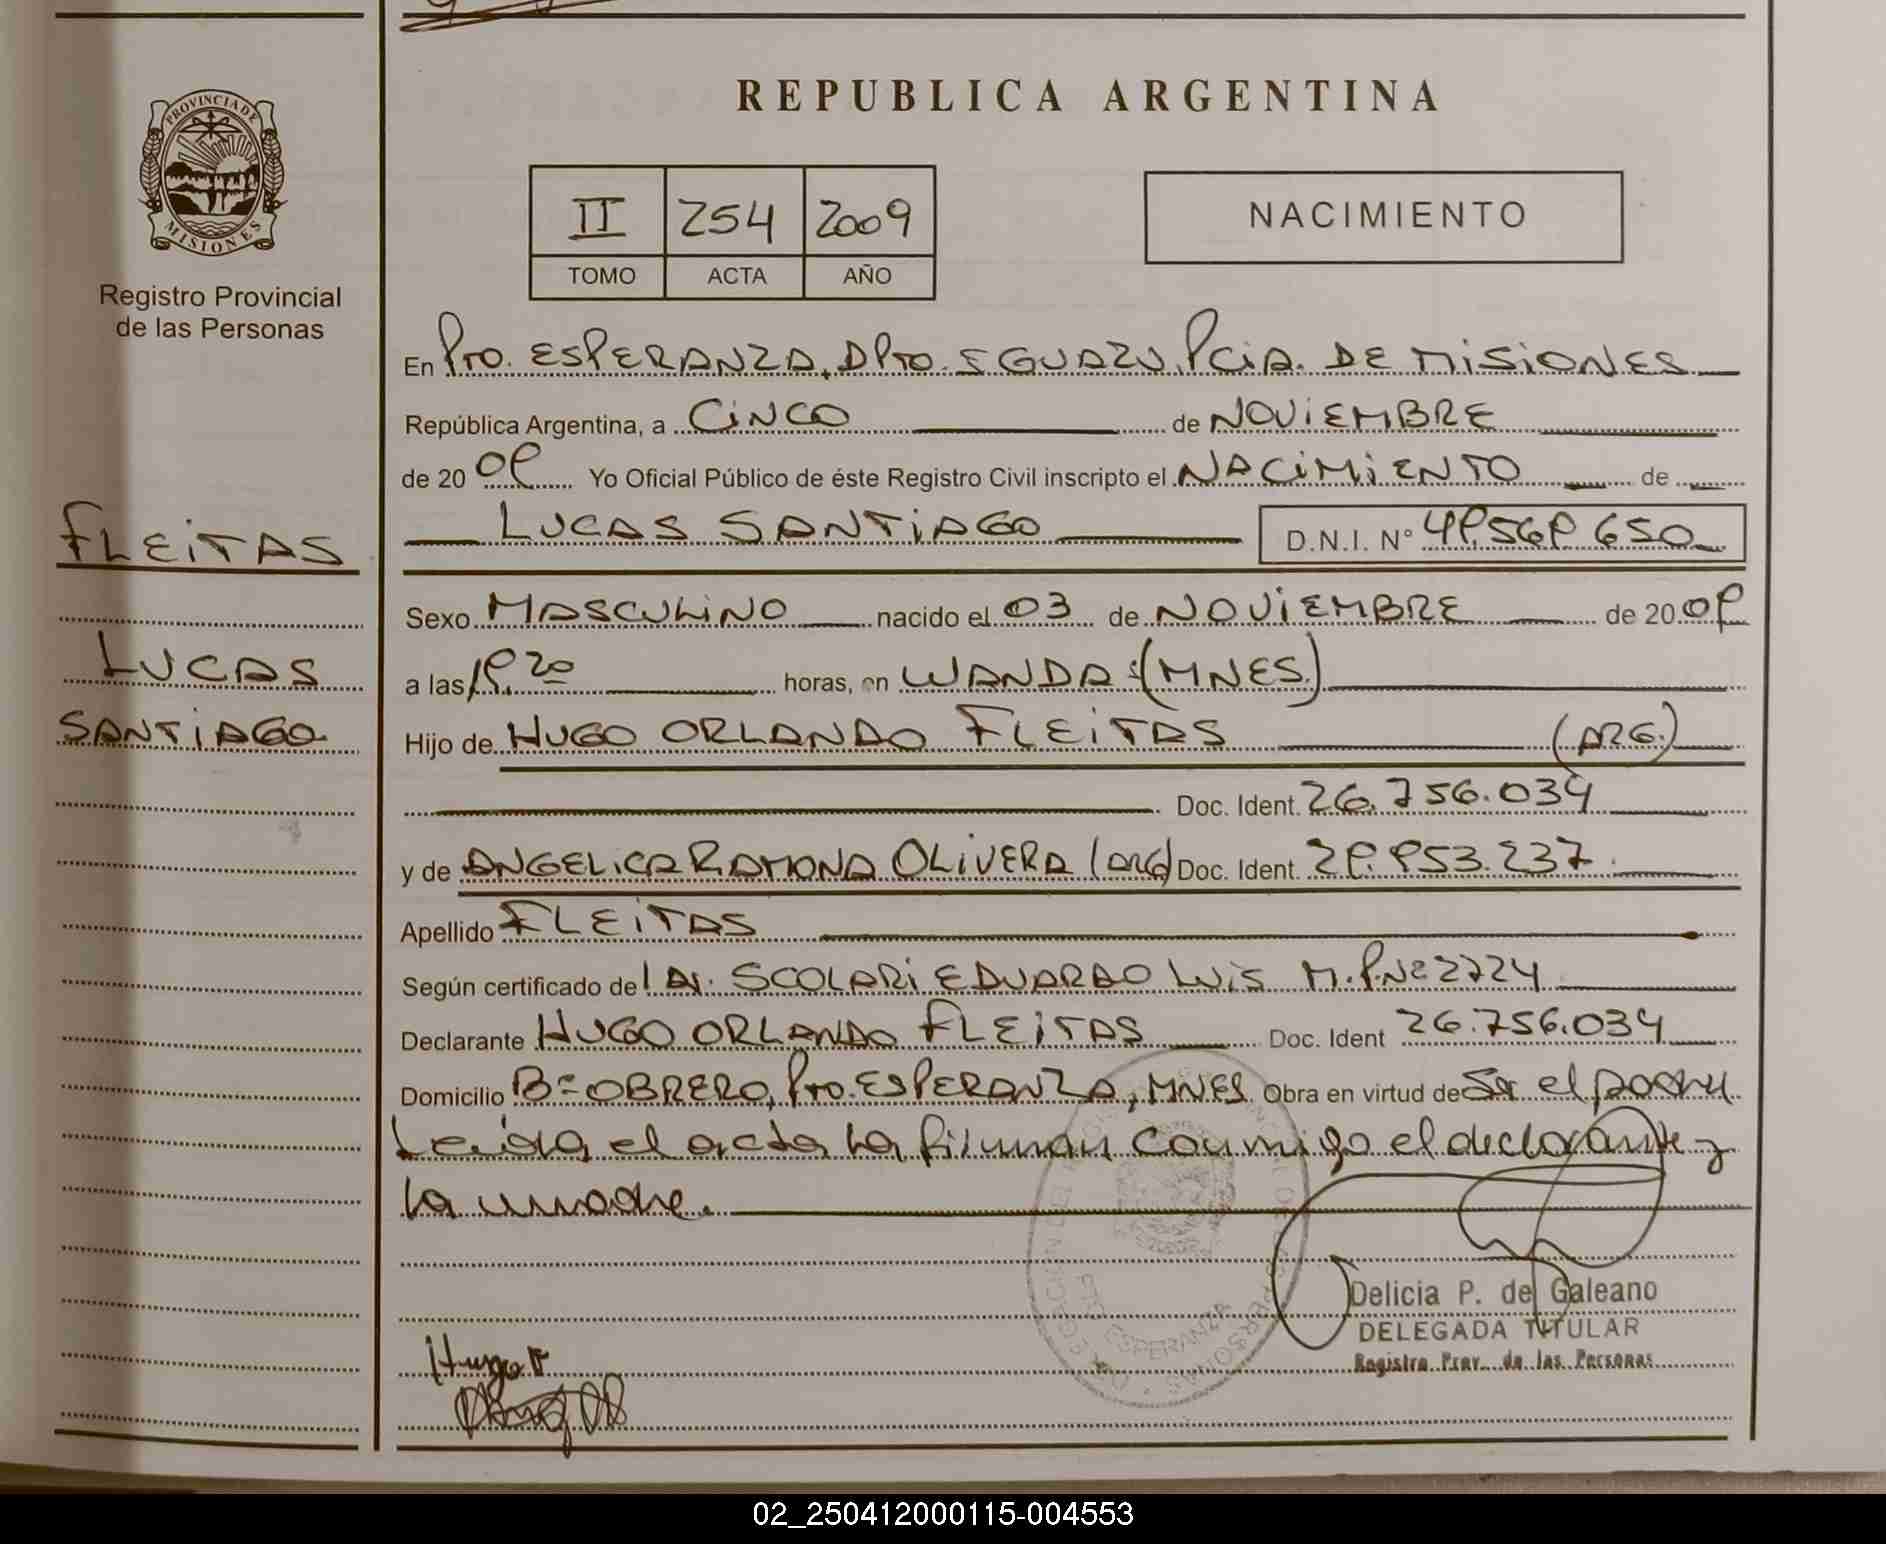 REPUBLICA ARGENTINA
PROVINCIA DE
MISIONES
Registro Provincial
de las Personas
II 254 2009
TOMO ACTA AÑO
NACIMIENTO
En Pto. ESPERANZA, DPTO. IGUAZU, PCIA. DE MISIONES
República Argentina, a CINCO de NOVIEMBRE
de 20 09 Yo Oficial Público de éste Registro Civil inscripto el NACIMIENTO de
LUCAS SANTIAGO D.N.I. N° 49.569.650
FLEITAS
LUCAS
SANTIAGO
Sexo MASCULINO nacido el 03 de NOVIEMBRE de 20 09
a las 19.20 horas, en WANDA (MNES.)
Hijo de HUGO ORLANDO FLEITAS (ARG.)
Doc. Ident. 26.756.034
y de ANGELICA RAMONA OLIVERA (ARG) Doc. Ident. 29.953.237
Apellido FLEITAS
Según certificado de l Dr. SCOLARI EDUARDO LUIS M.P.Nº 2724
Declarante HUGO ORLANDO FLEITAS Doc. Ident 26.756.034
Domicilio Bº OBRERO, Pto. ESPERANZA, MNES Obra en virtud de Ser el padre
Leida el acta la firman conmigo el declarante y
la madre.
Delicia P. de Galeano
DELEGADA TITULAR
Registro Prov. de las Personas
PTO ESPERANZA
Hugo F
02_250412000115-004553